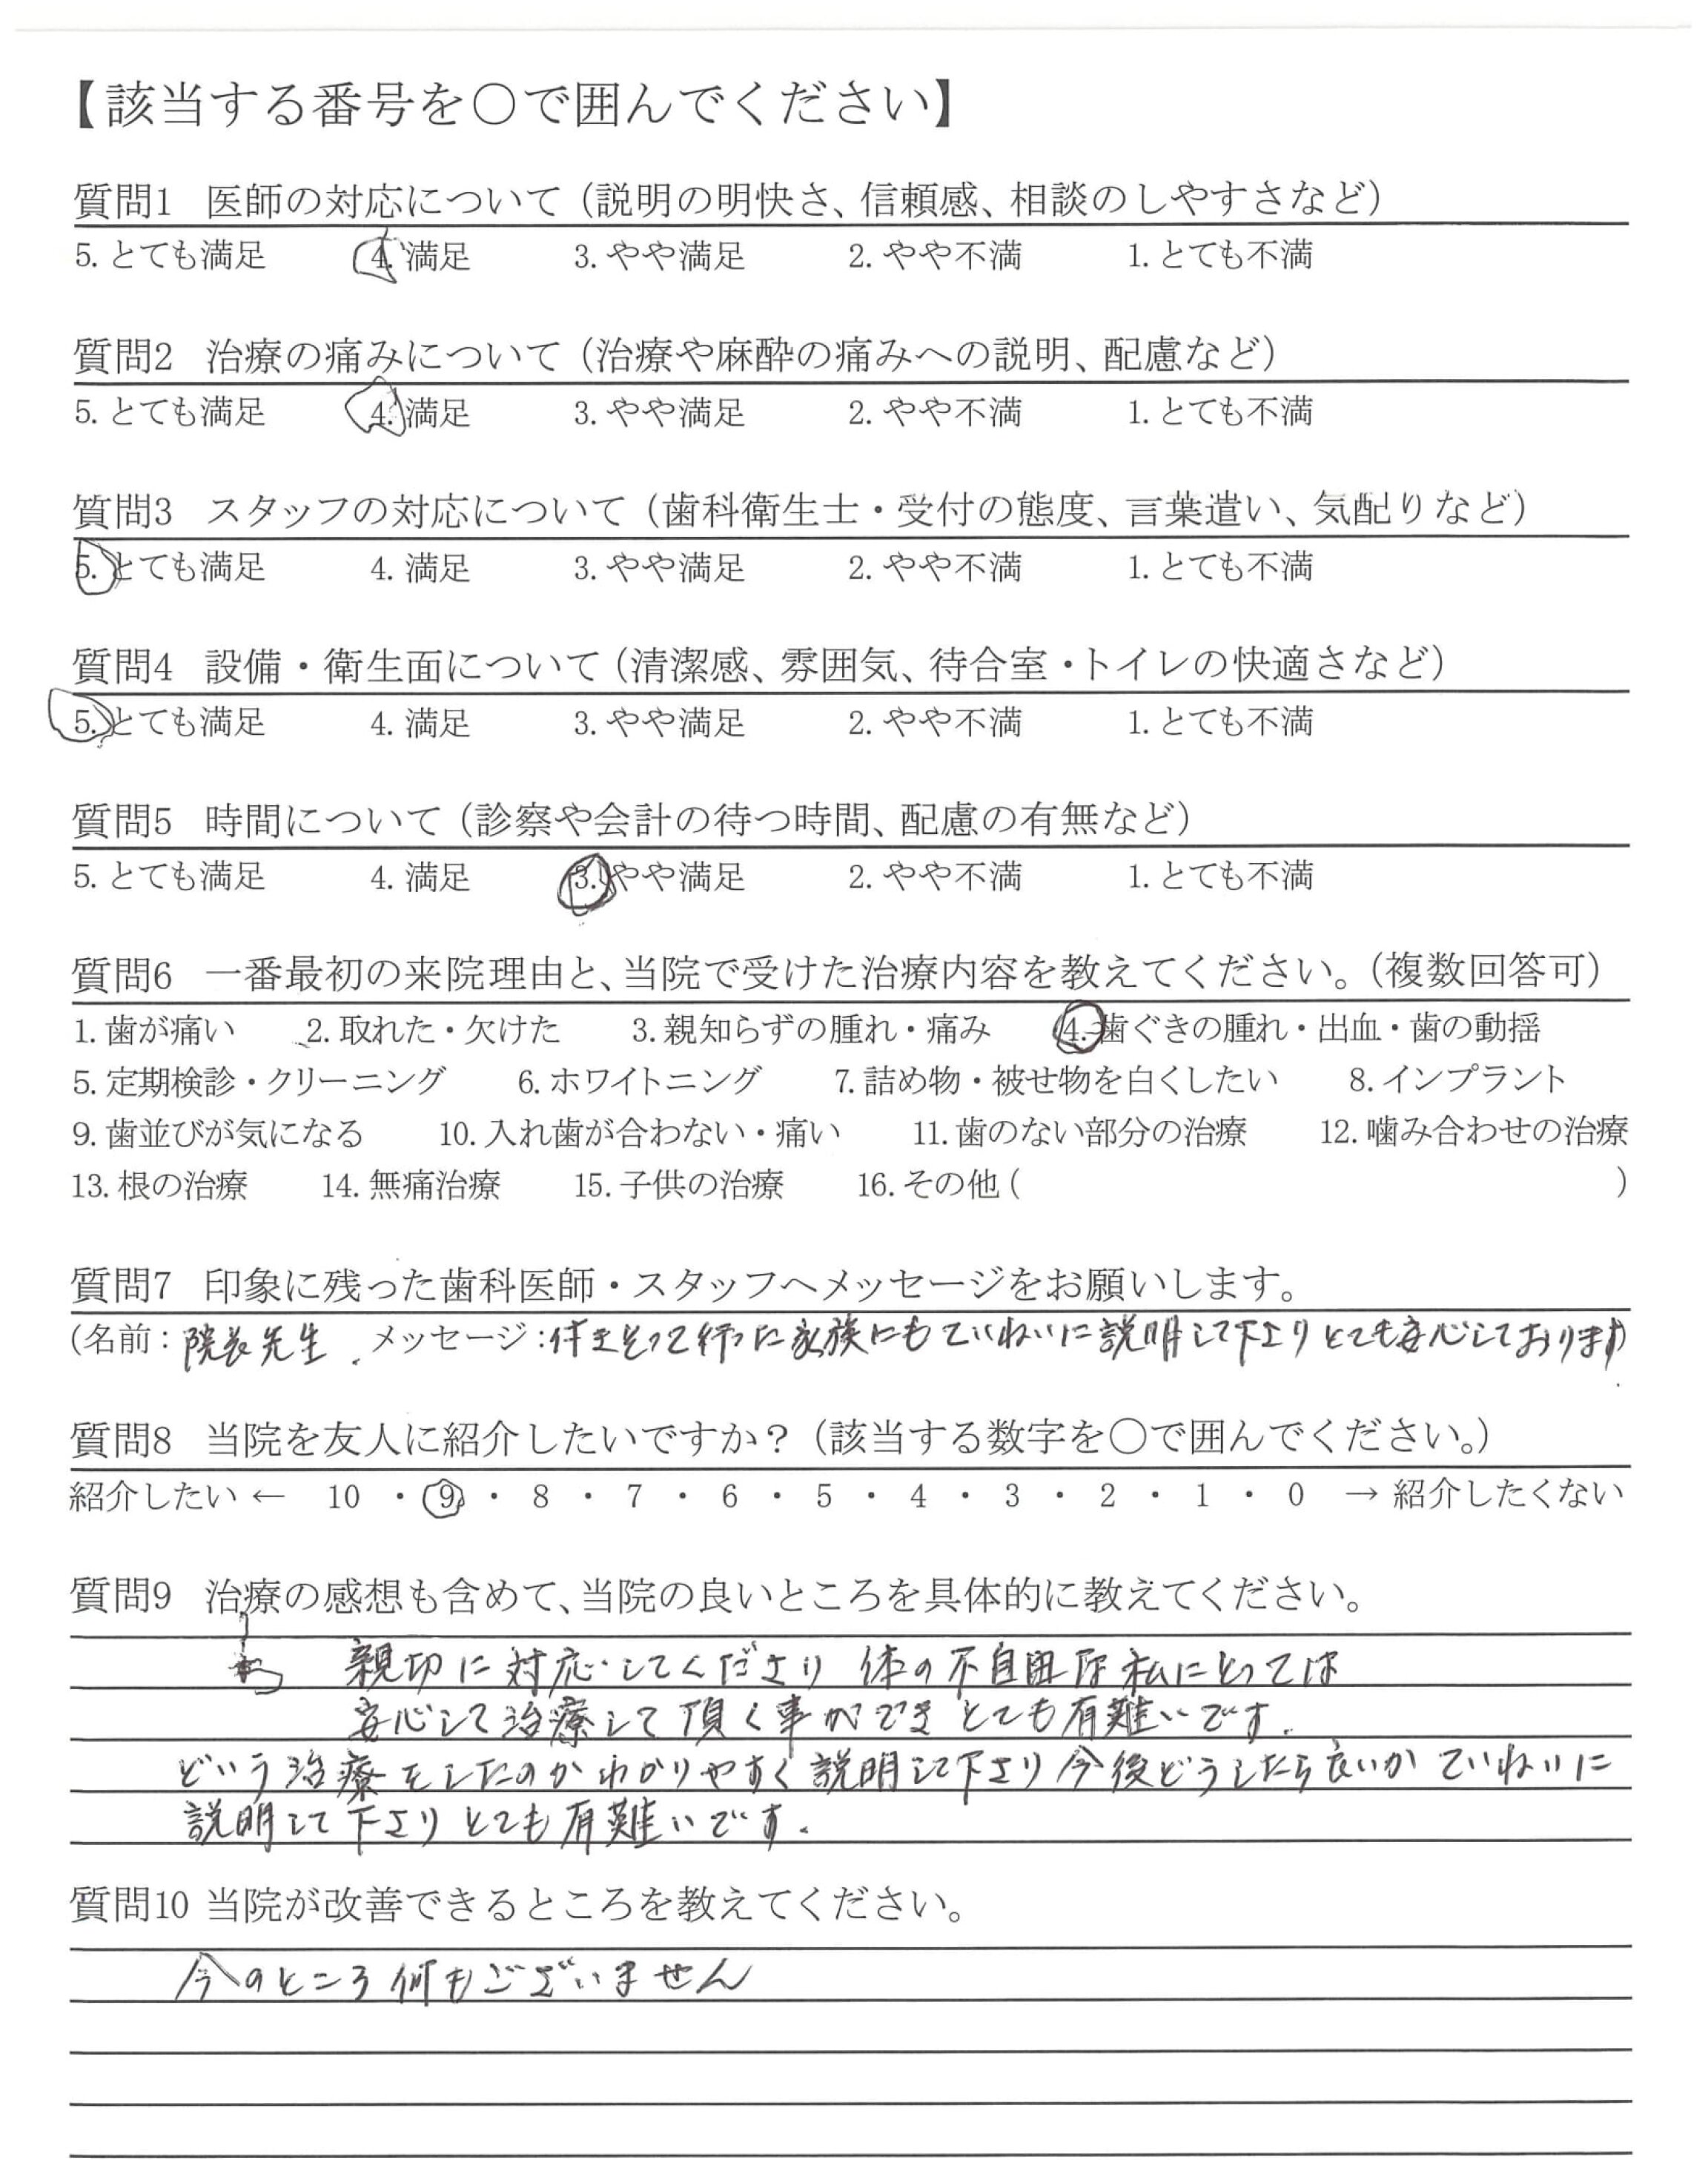 【該当する番号を○で囲んでください】
質問1 医師の対応について（説明の明快さ、信頼感、相談のしやすさなど）
5. とても満足 4. 満足 3. やや満足 2. やや不満 1. とても不満
質問2 治療の痛みについて（治療や麻酔の痛みへの説明、配慮など）
5. とても満足 4. 満足 3. やや満足 2. やや不満 1. とても不満
質問3 スタッフの対応について（歯科衛生士・受付の態度、言葉遣い、気配りなど）
5. とても満足 4. 満足 3. やや満足 2. やや不満 1. とても不満
質問4 設備・衛生面について（清潔感、雰囲気、待合室・トイレの快適さなど）
5. とても満足 4. 満足 3. やや満足 2. やや不満 1. とても不満
質問5 時間について（診察や会計の待つ時間、配慮の有無など）
5. とても満足 4. 満足 3. やや満足 2. やや不満 1. とても不満
質問6 一番最初の来院理由と、当院で受けた治療内容を教えてください。（複数回答可）
1. 歯が痛い 2. 取れた・欠けた 3. 親知らずの腫れ・痛み 4. 歯ぐきの腫れ・出血・歯の動揺
5. 定期検診・クリーニング 6. ホワイトニング 7. 詰め物・被せ物を白くしたい 8. インプラント
9. 歯並びが気になる 10. 入れ歯が合わない・痛い 11. 歯のない部分の治療 12. 噛み合わせの治療
13. 根の治療 14. 無痛治療 15. 子供の治療 16. その他（ ）
質問7 印象に残った歯科医師・スタッフへメッセージをお願いします。
（名前：院長先生. メッセージ：付きそって行った家族にもていねいに説明して下さりとても安心しております）
質問8 当院を友人に紹介したいですか？（該当する数字を○で囲んでください。）
紹介したい ← 10 ・ 9 ・ 8 ・ 7 ・ 6 ・ 5 ・ 4 ・ 3 ・ 2 ・ 1 ・ 0 → 紹介したくない
質問9 治療の感想も含めて、当院の良いところを具体的に教えてください。
親切に対応してくださり 体の不自由な私にとっては
安心して治療して頂く事ができとても有難いです.
どいう治療をしたのかわかりやすく説明して下さり今後どうしたら良いかていねいに
説明して下さりとても有難いです.
質問10 当院が改善できるところを教えてください。
今のところ何もございません